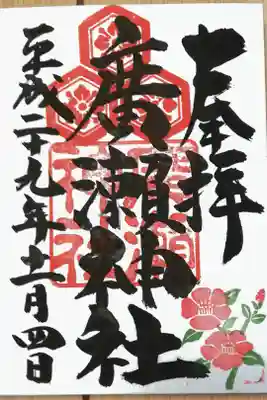 奉拝
廣瀬神社
平成二十九年十一月四日
廣瀬神社